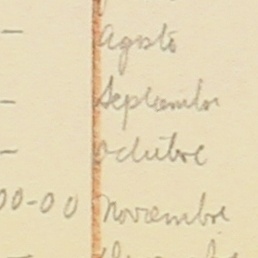 — Agosto
— Septiembre
— Octubre
00-00 Noviembre